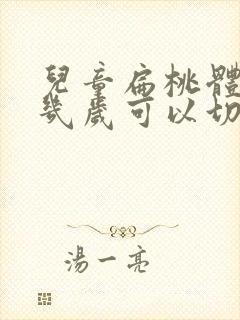 兒童扁桃體
幾歲可以切
湯一亮